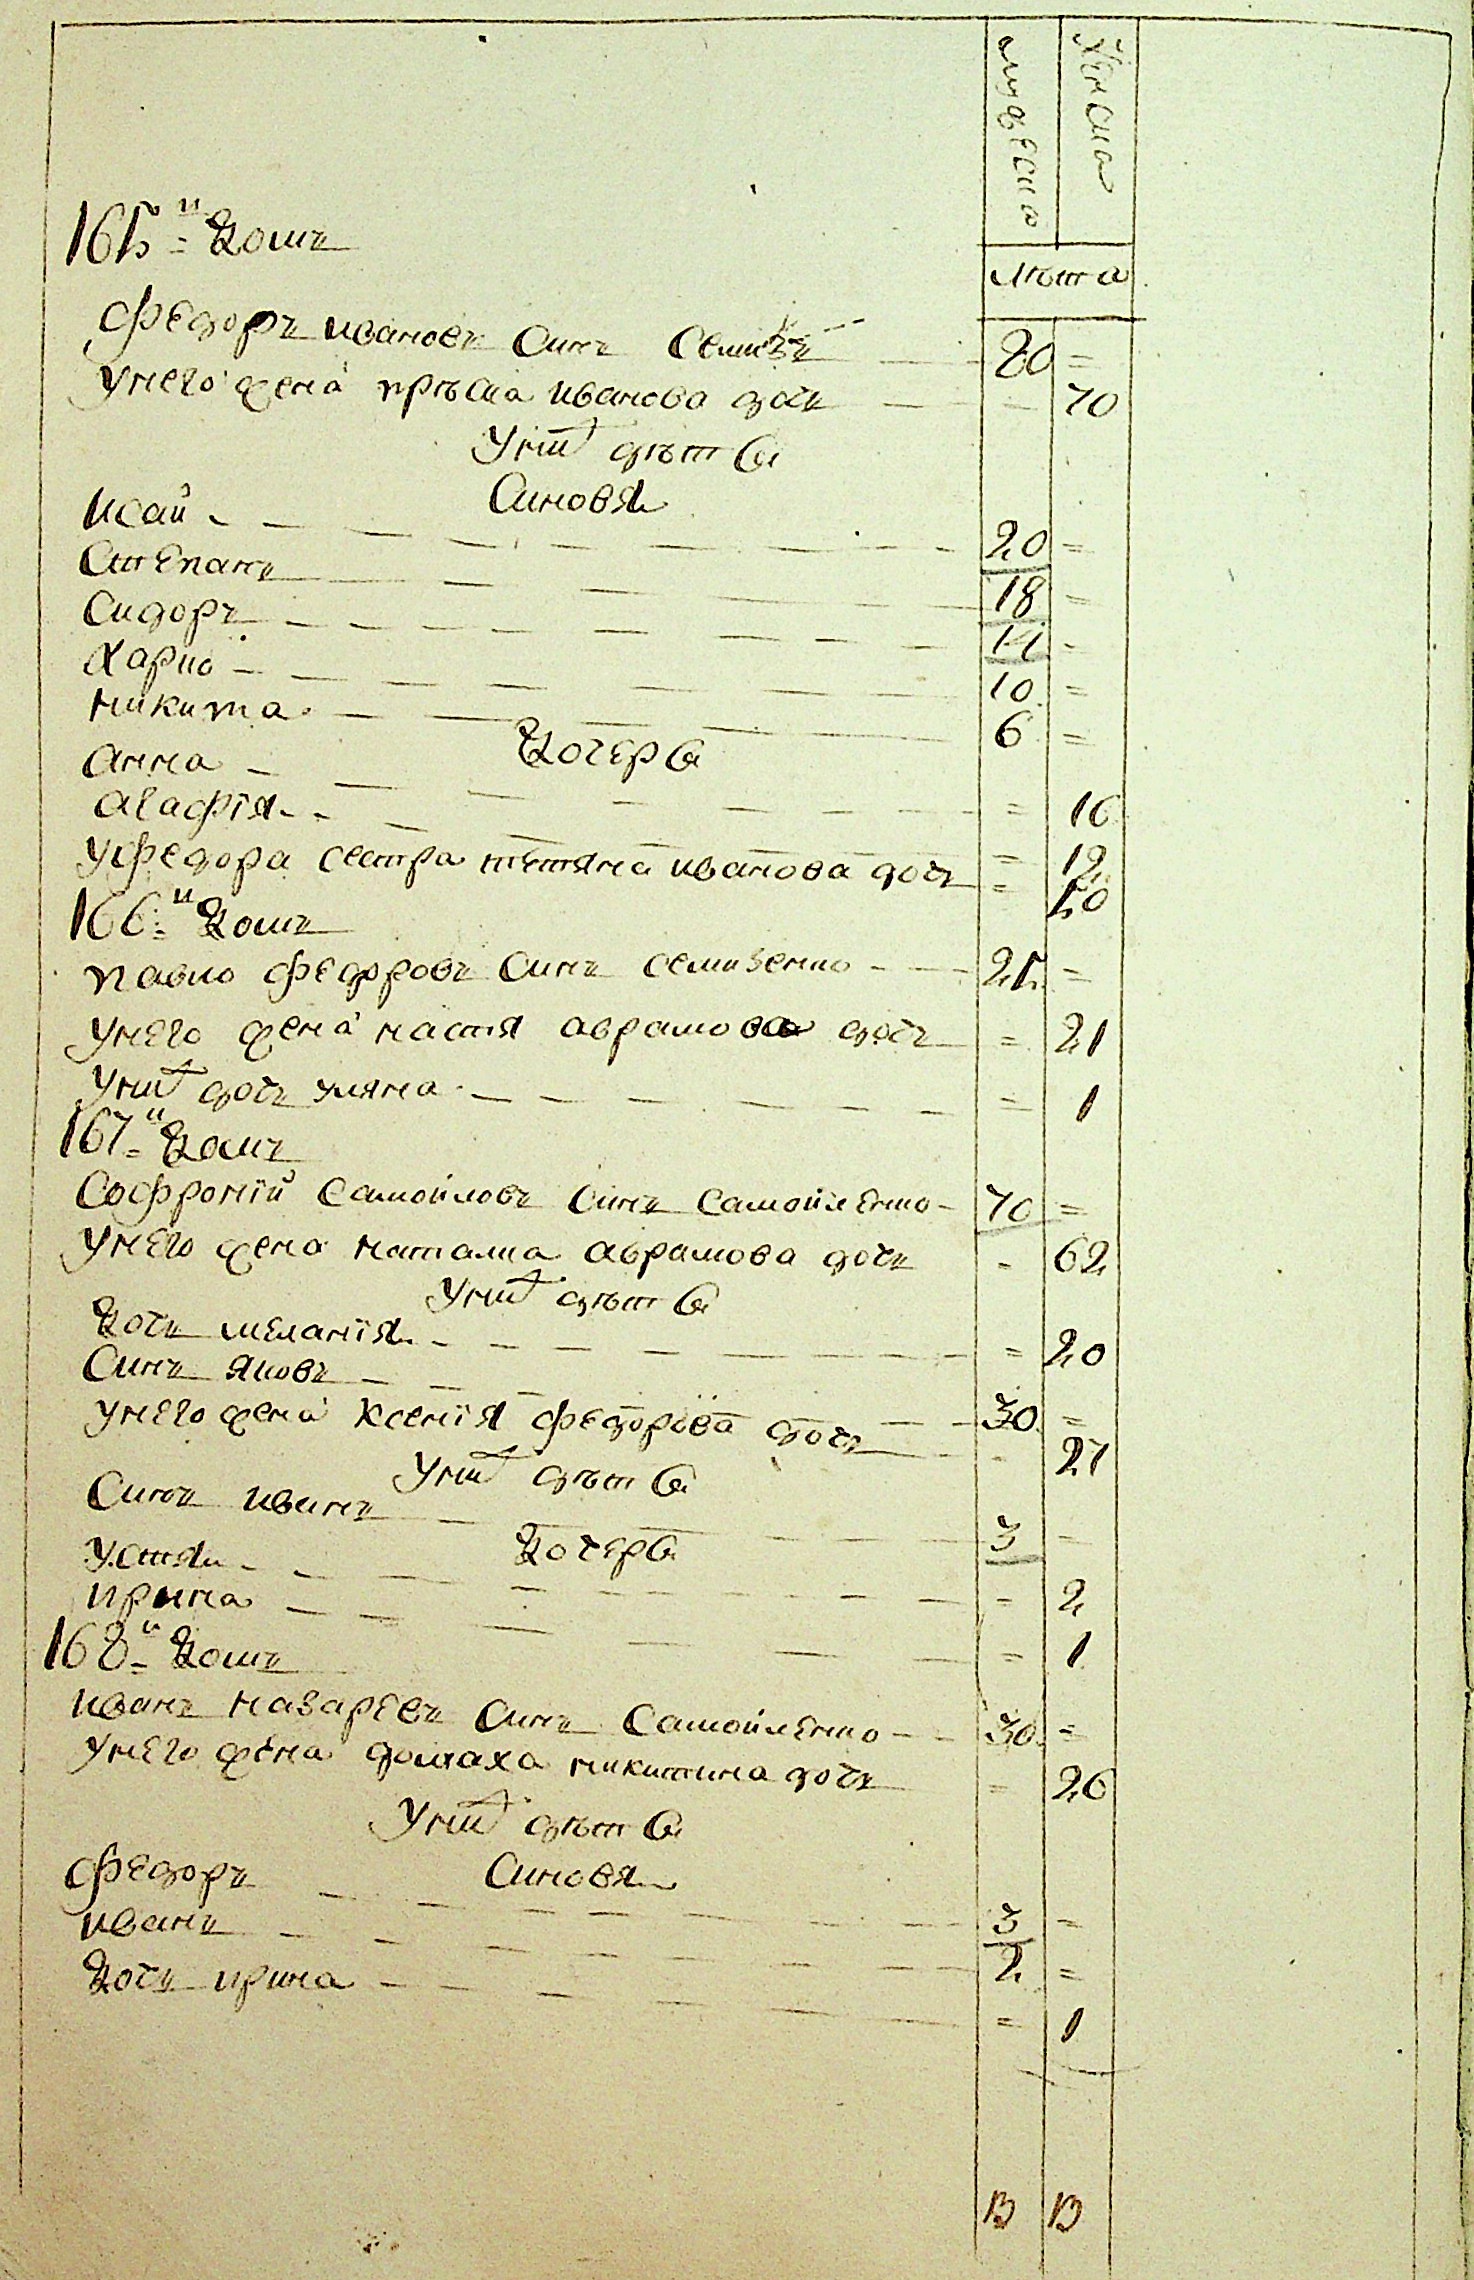 мужеска
женска
лѣта
165й домъ
федоръ ивановъ синъ семизъ 80 =
унего жена прѣска иванова дочъ — 70
унихъ дѣтеи
Синовя
исай 20 =
Степанъ 18 =
Сидоръ 14 =
Карпо 10 =
никита 6 =
дочери
анна = 16
агафїя = 12
уфедора сестра тетяна иванова дочъ = 50
166й домъ
павло федоровъ синъ семизенко 25 =
унего жена настя аврамова дочъ = 21
унихъ дочъ уляна = 1
167й домъ
Софронїй самойловъ синъ самойленко 70 =
унего жена наталка аврамова дочъ = 62
унихъ дѣтеи
дочъ меланїя = 20
Синъ яковъ 30 =
унего жена ксенїя федорова дочъ - 27
унихъ дѣтеи
Синъ иванъ 3 -
дочери
устя - 2
ирина = 1
168й домъ
иванъ назаревъ синъ самойленко 30 =
унего жена домаха никитина дочъ = 26
унихъ дѣтеи
Синовя
федоръ 3 =
иванъ 2 =
дочъ ирина = 1
13 13